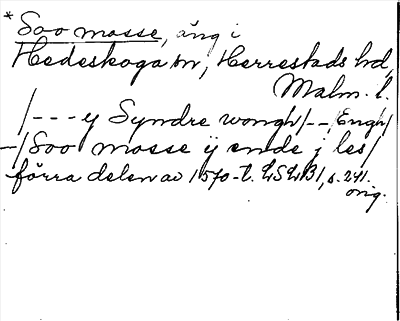 * Soo mosse, äng i
Hedeskoga sn, Herrestads hd,
Malm. l.
/--- y Syndre wongh/--, Engh/
-/Soo mosse ÿ ende j les/
förra delen av 1570-t. LSLB1, s. 241.
orig.